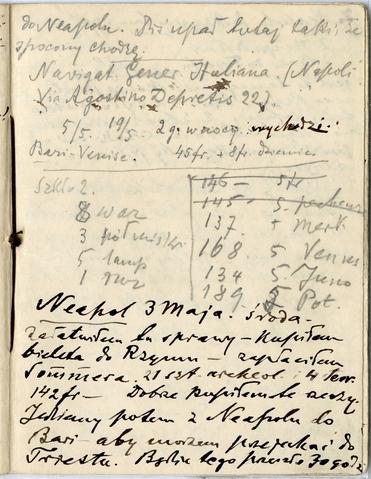 do Neapolu. Dziś upał tutaj taki, że
spocony chodzę.
Navigat. Gener Italiana. (Napoli
Via Agostino Depretis 22).
5/5. 19/5. 2 g. w nocy wychodzi.
Bari-Venise. 45 fr. + 8 fr. dziennie
Szkło 2.
8 waz
3 półmiski
5 lamp
1
146 — 5 fr
145 — 5.
137. +
168. 5. Venus
134 5. Juno
189. 5 Pot.
Neapol 3 Maja. środa.
załatwiłem tu sprawy — kupiłem
bileta do Rzymu — zapłaciłem
Sommera. 21 szt. archeol. i 4
142 fr — Dobrze kupiłem te rzeczy.
Jedziemy potem z Neapolu do
Bari — aby morzem przejechać do
Triestu. Będzie tego 30 godz